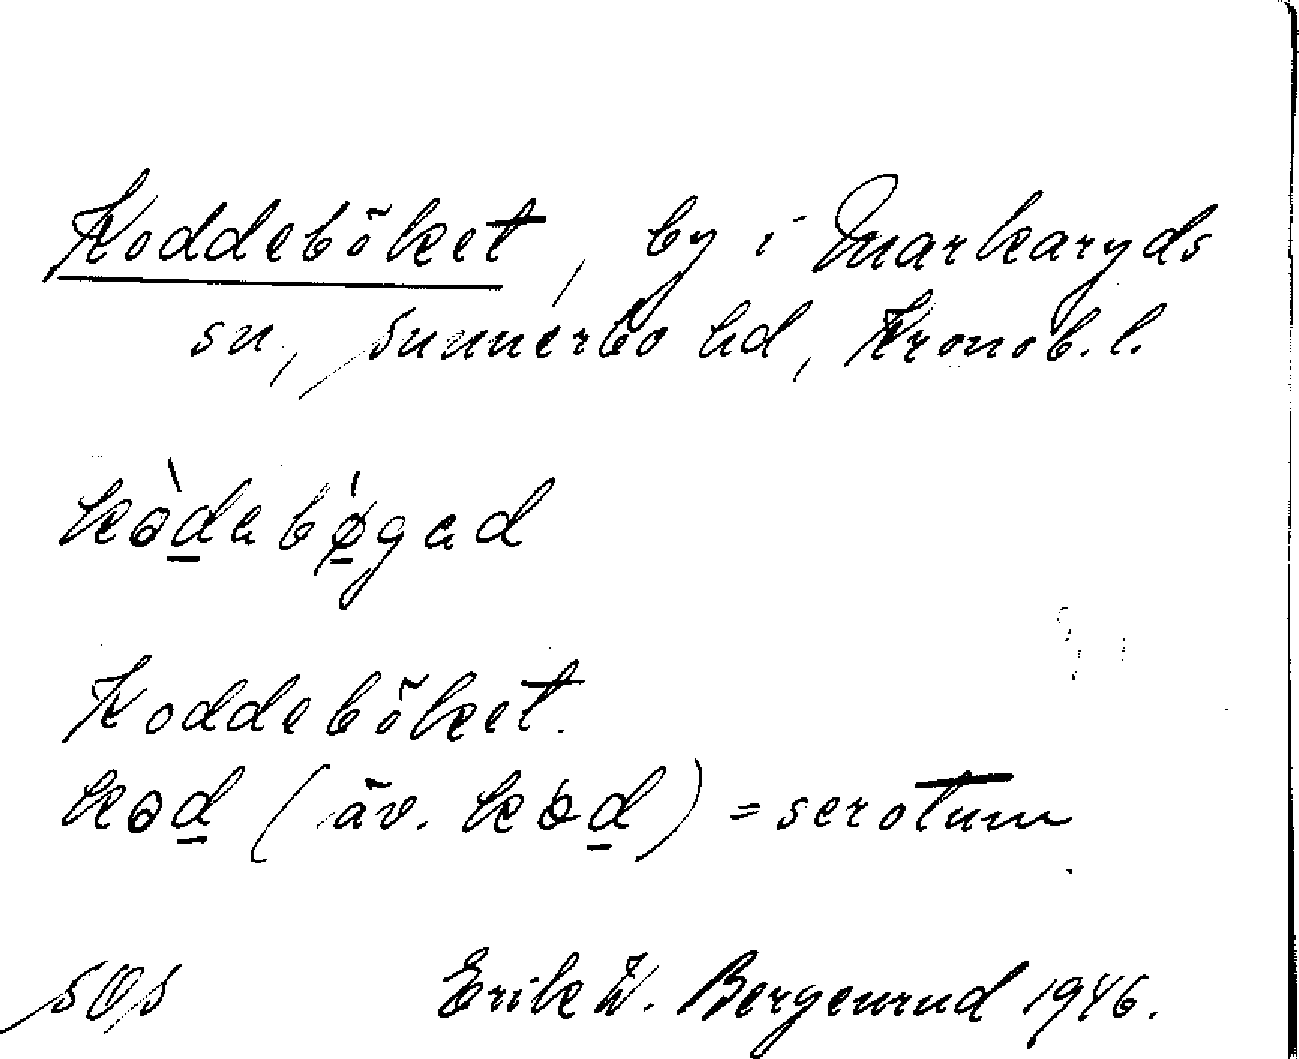 Koddeböket, by i Markaryds
sn, Sunnerbo hd, Kronob. l.
kədabøgad
Koddeböket.
kəd (äv. kəd) = scrotum
SOS Erik W. Bergenrud 1946.